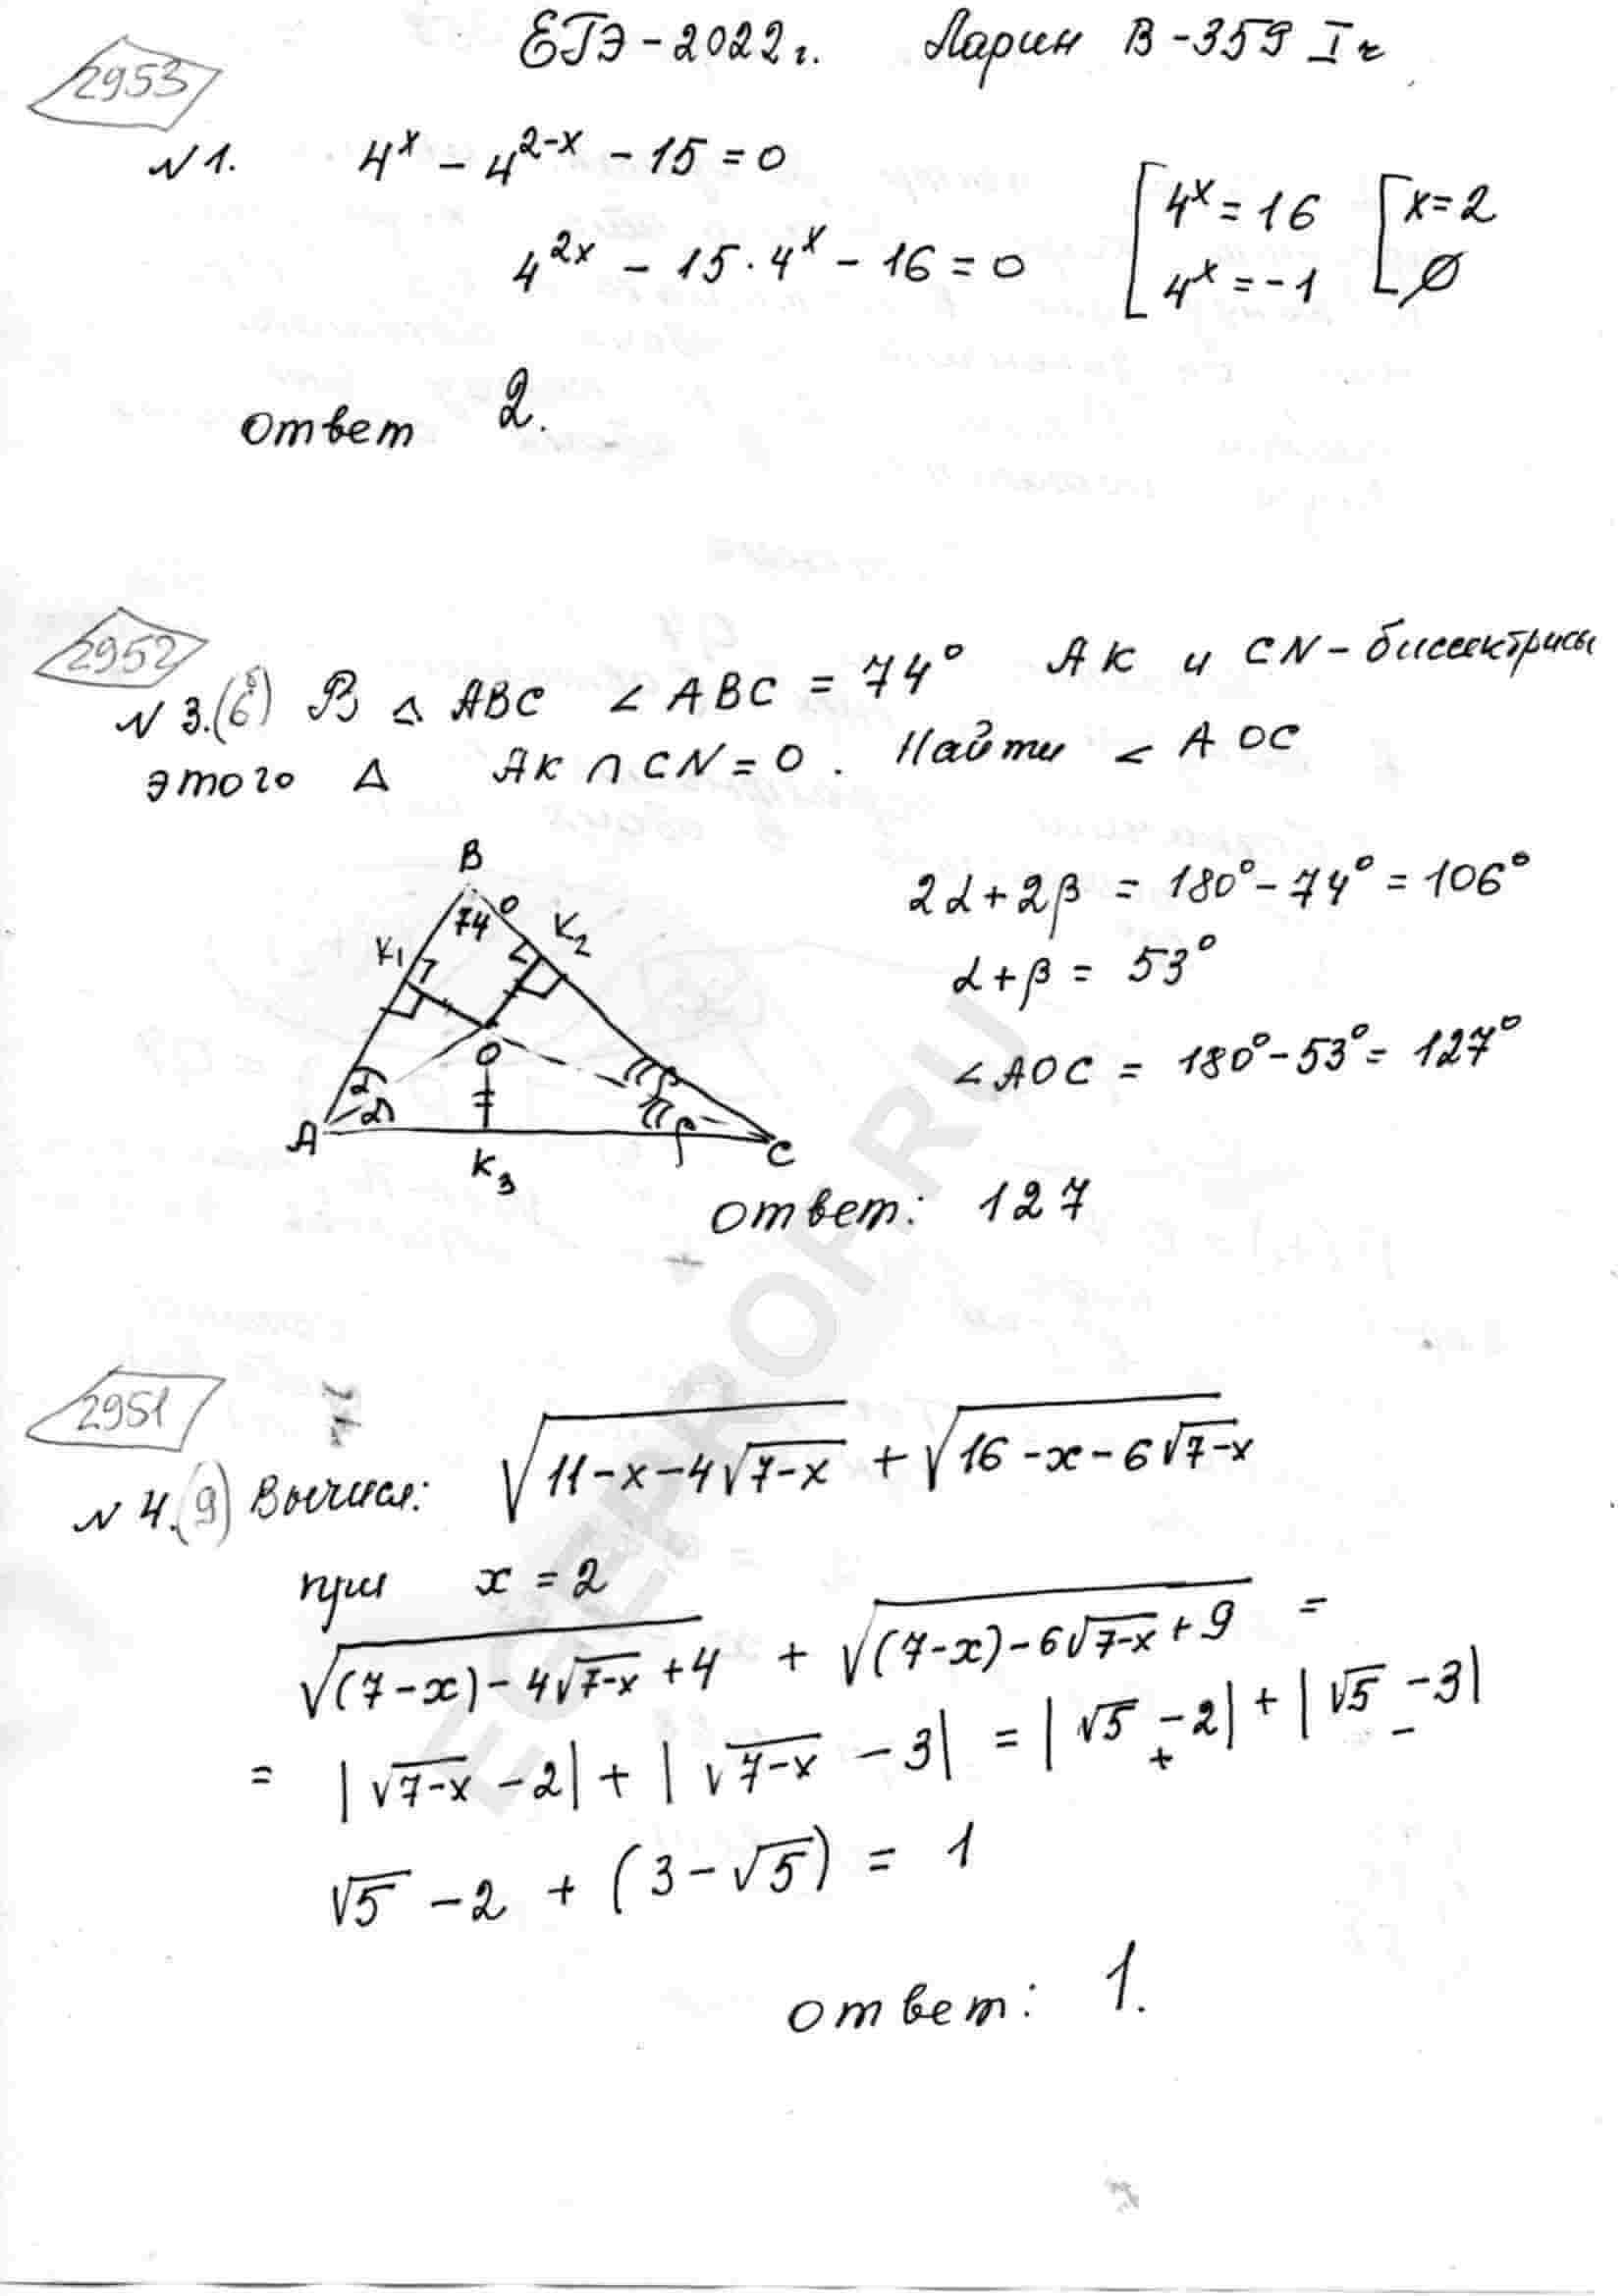 ЕГЭ-2022г. Ларин В-359 I ч
2953
№1. 4^x - 4^{2-x} - 15 = 0
4^{2x} - 15 · 4^x - 16 = 0 [4^x = 16 [x = 2
4^x = -1 ∅
ответ 2.
2952
№3.(6) В △ ABC ∠ABC = 74° AK и CN - биссектрисы
этого △ AK ∩ CN = O. Найти ∠AOC
B
74°
K1
K2
O
α
α
β
β
A
K3
C
2α + 2β = 180° - 74° = 106°
α + β = 53°
∠AOC = 180° - 53° = 127°
ответ: 127
2951
№4.(9) Вычисл: √(11 - x - 4√(7-x)) + √(16 - x - 6√(7-x))
при x = 2
√((7-x) - 4√(7-x) + 4) + √((7-x) - 6√(7-x) + 9) =
= |√(7-x) - 2| + |√(7-x) - 3| = |√5 - 2| + |√5 - 3|
+ -
√5 - 2 + (3 - √5) = 1
ответ: 1.
EGEPROF.RU